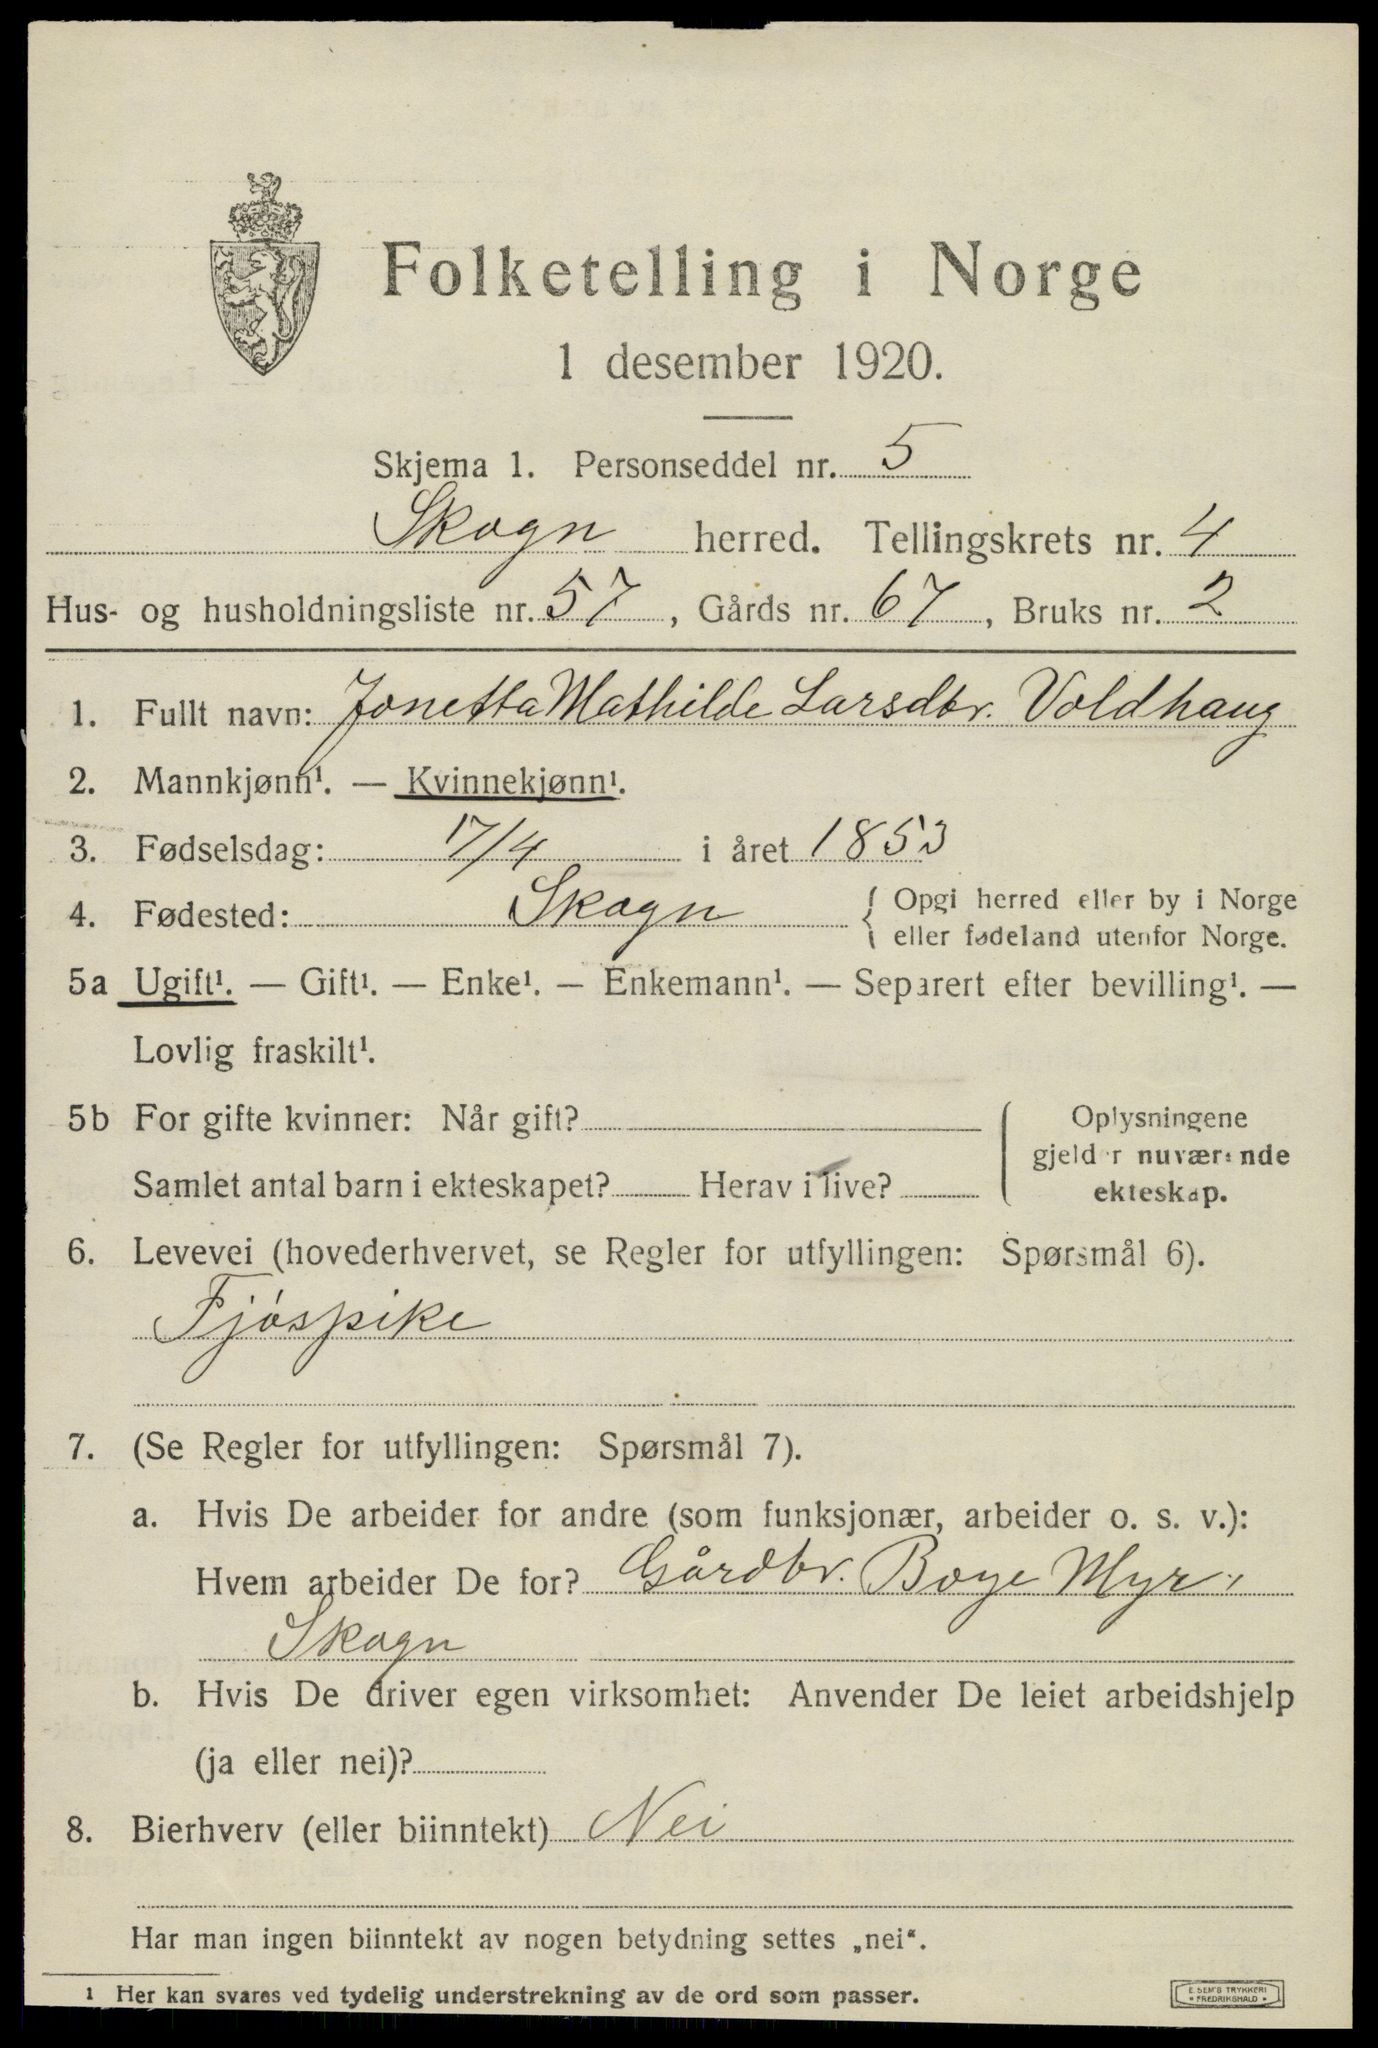 Folketelling i Norge
1 desember 1920.
Skjema 1. Personseddel nr. 5
Skogn herred. Tellingskrets nr. 4
Hus- og husholdningsliste nr. 57, Gårds nr. 67, Bruks nr. 2
1. Fullt navn: Jonetta Mathilde Larsdtr. Voldhaug
2. Mannkjønn¹. — Kvinnekjønn¹.
3. Fødselsdag: 17/4 i året 1853
4. Fødested: Skogn { Opgi herred eller by i Norge
eller fødeland utenfor Norge.
5a Ugift¹. — Gift¹. — Enke¹. — Enkemann¹. — Separert efter bevilling¹. —
Lovlig fraskilt¹.
5b For gifte kvinner: Når gift?
Samlet antal barn i ekteskapet? Herav i live?
Oplysningene
gjelder nuværende
ekteskap.
6. Levevei (hovederhvervet, se Regler for utfyllingen: Spørsmål 6).
Fjóspike
7. (Se Regler for utfyllingen: Spørsmål 7).
a. Hvis De arbeider for andre (som funksjonær, arbeider o. s. v.):
Hvem arbeider De for? Gårdbr. Boye Myr,
Skogn
b. Hvis De driver egen virksomhet: Anvender De leiet arbeidshjelp
(ja eller nei)?
8. Bierhverv (eller biinntekt) Nei
Har man ingen biinntekt av nogen betydning settes „nei“.
¹ Her kan svares ved tydelig understrekning av de ord som passer.
E. SEM'S TRYKKERI
• FREDRIKSHALD •